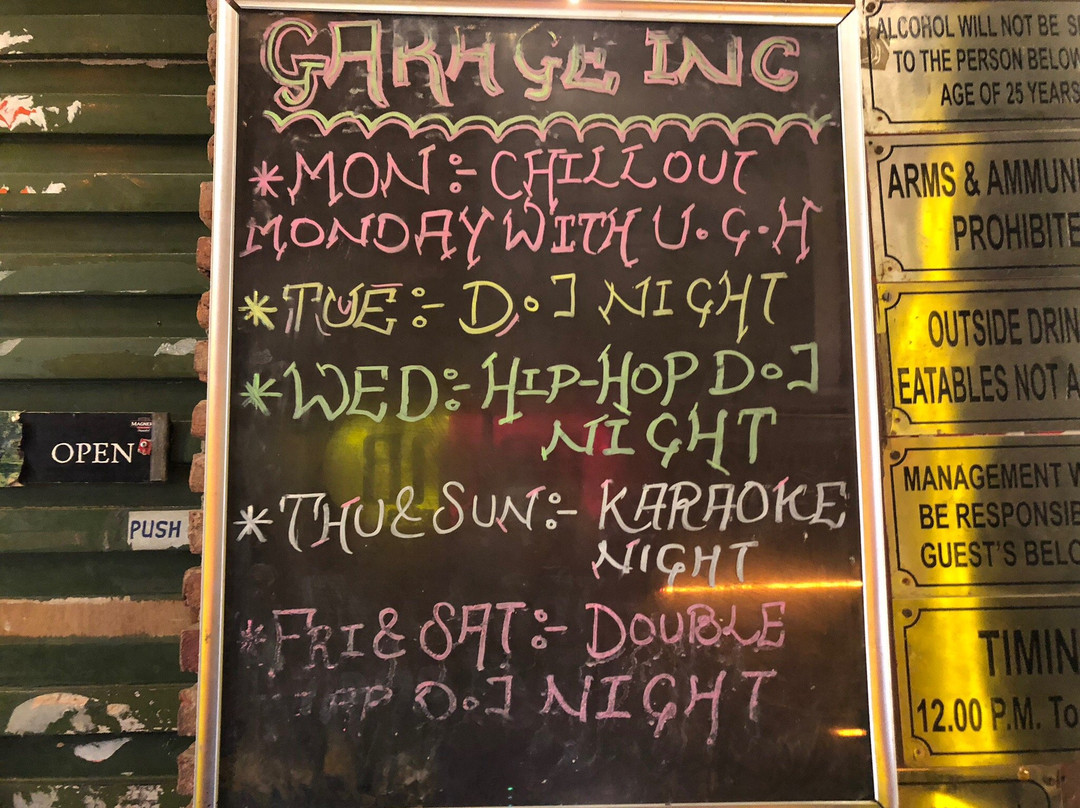 GARAGE INC
*MON:- CHILLOUT
MONDAY WITH U.G.H
*TUE:- D.J NIGHT
*WED:- HIP-HOP D.J
NIGHT
*THU & SUN:- KARAOKE
NIGHT
*FRI & SAT:- DOUBLE
TAP D.J NIGHT
OPEN
PUSH
ALCOHOL WILL NOT BE
TO THE PERSON BELOW
AGE OF 25 YEARS
ARMS &
PROHIBITE
OUTSIDE
EATABLES NOT
MANAGEMENT
BE
GUEST'S
TIMIN
12.00 P.M. To